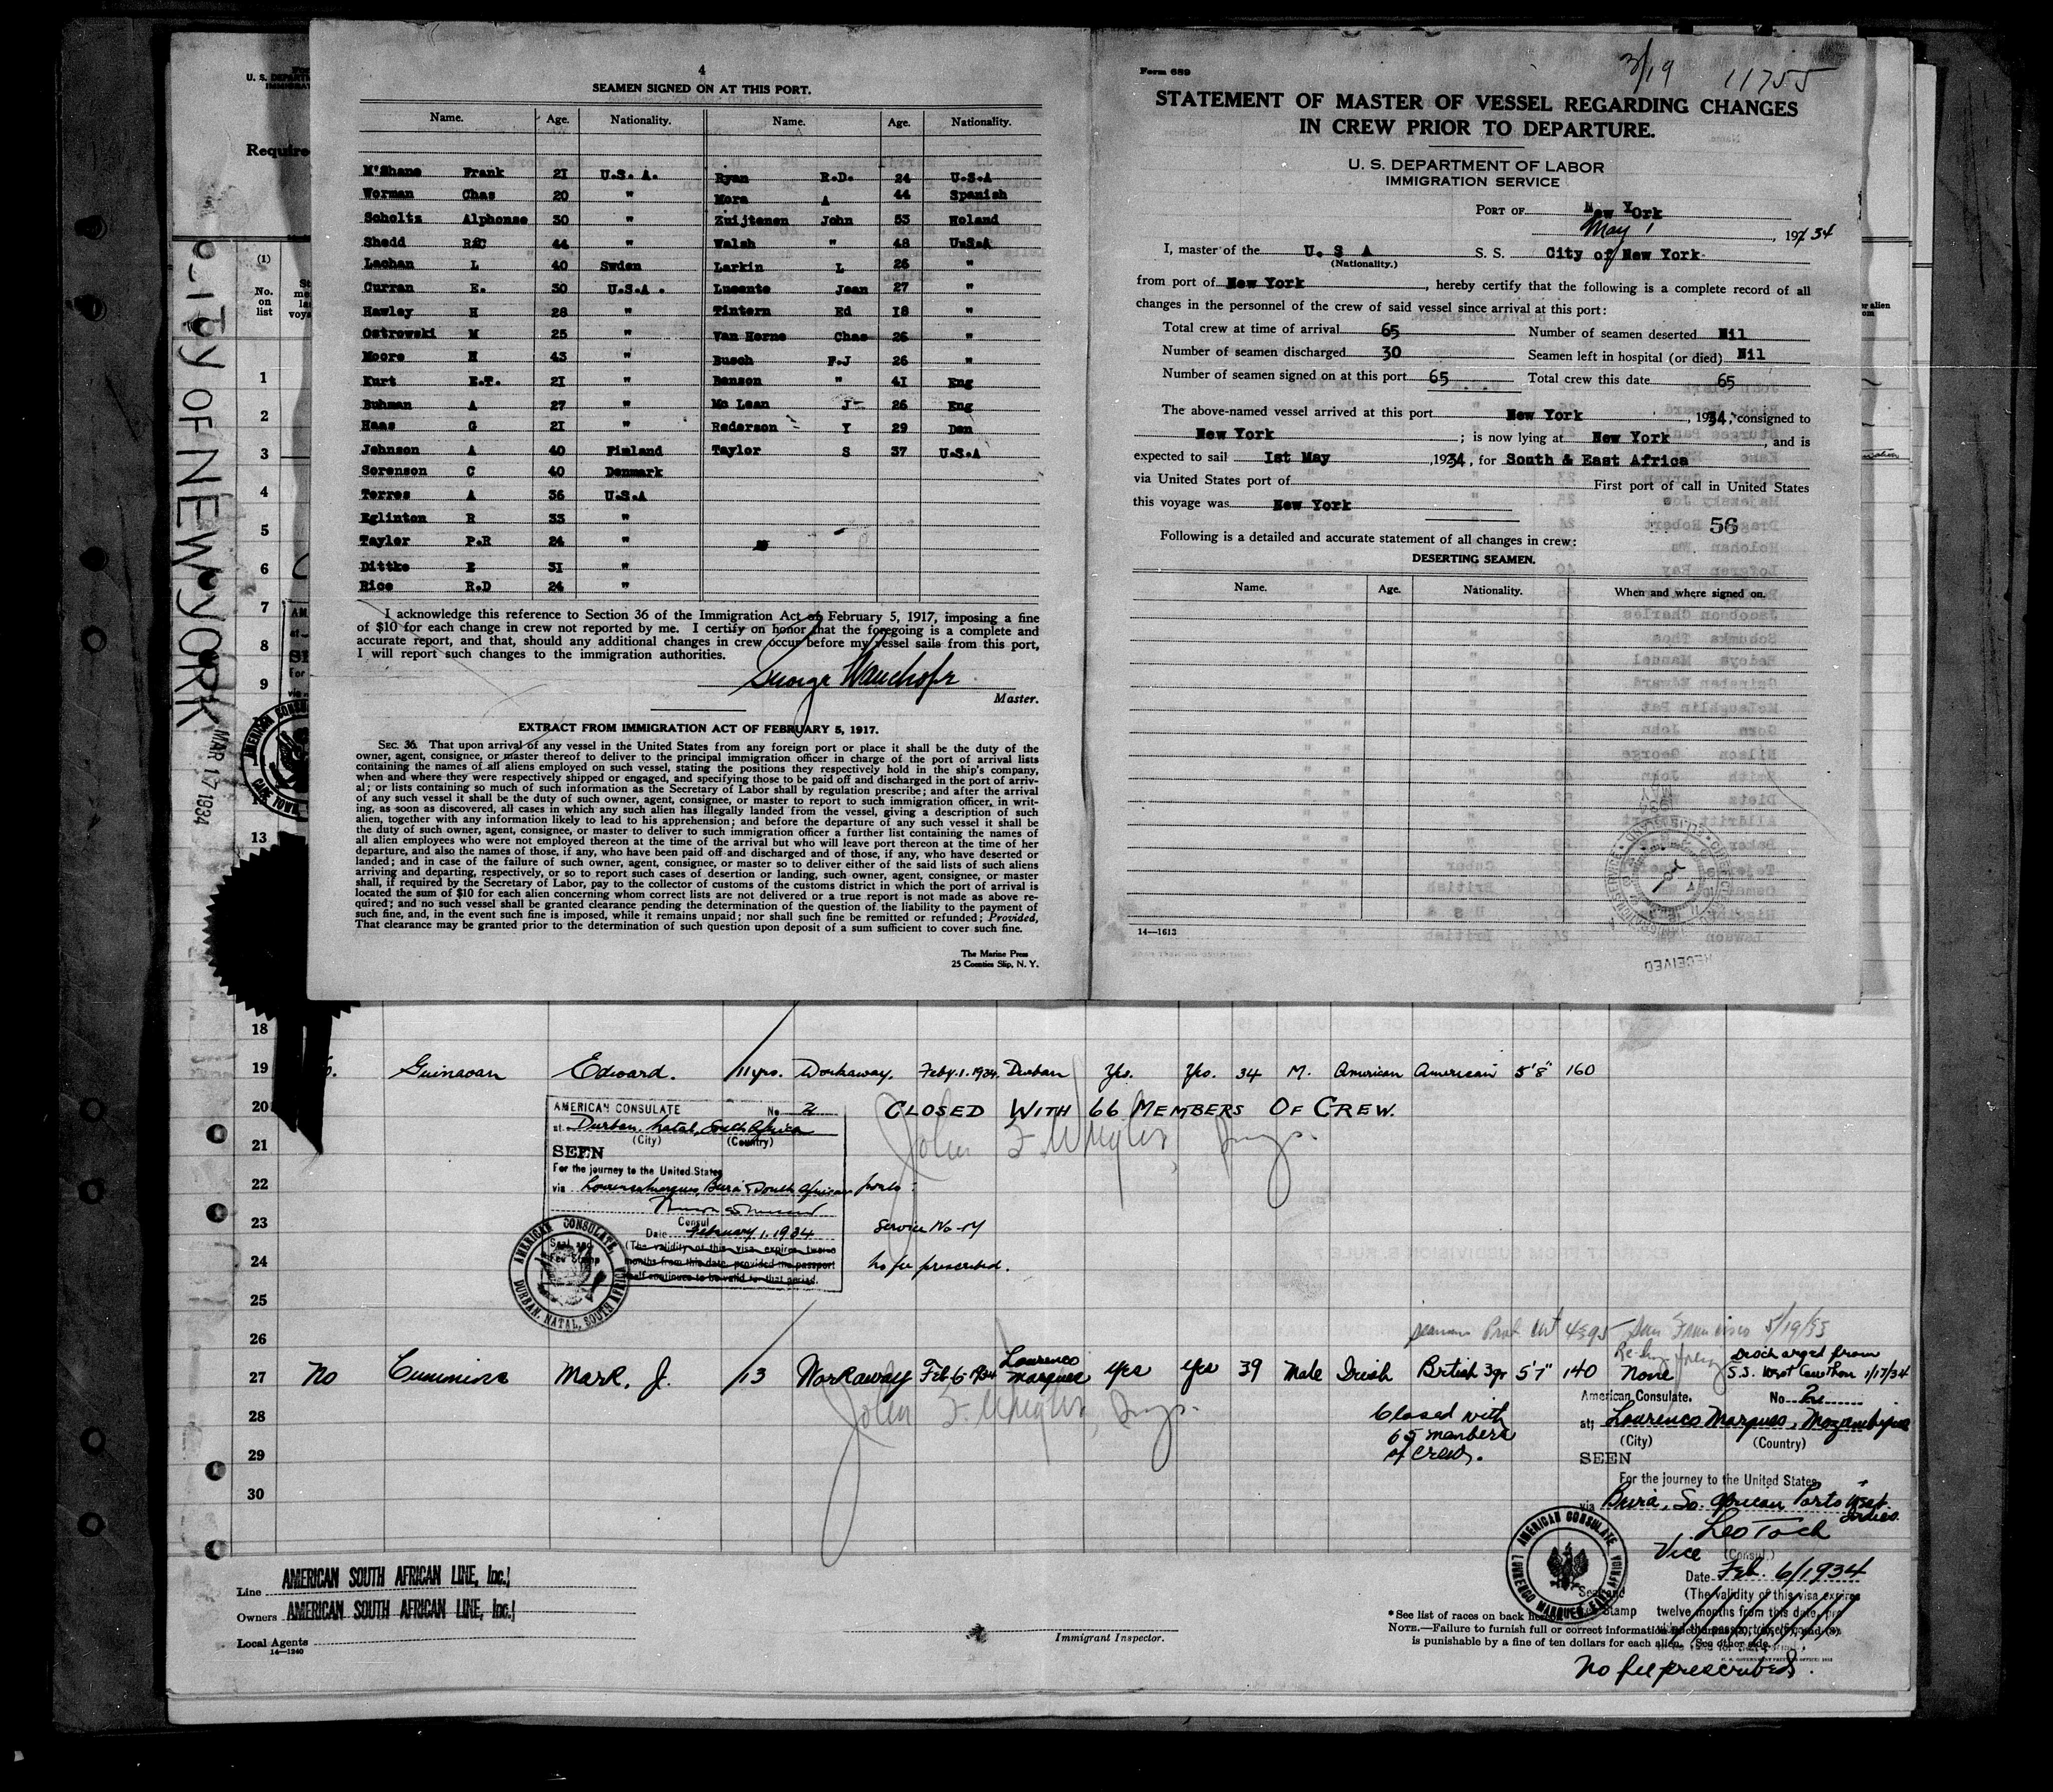 4
SEAMEN SIGNED ON AT THIS PORT.
Name. Age. Nationality. Name. Age. Nationality.
M'Shane Frank 21 U.S. A. Ryan R.D. 24 U.S.A
Worman Chas 20 " Mora A 44 Spanish
Scholtz Alphonse 30 " Zuijtenen John 53 Holand
Shedd R&C 44 " Walsh " 48 U.S.A
Lachan L 40 Swden Larkin L 26 "
Curran E. 30 U.S.A . Lucente Jean 27 "
Hawley H 28 " Tintern Ed 18 "
Ostrowski M 25 " Van Horne Chas 26 "
Moore H 43 " Busch F.J 26 "
Kurt E.T. 21 " Benson " 41 Eng
Buhman A 27 " Mc Lean J 26 Eng
Haas G 21 " Rederson Y 29 Den
Johnson A 40 Finland Taylor S 37 U.S.A
Sorenson C 40 Denmark
Torres A 36 U.S.A
Eglinton R 33 "
Taylor P.R 24 "
Dittke E 31 "
Rice R.D 24 "
I acknowledge this reference to Section 36 of the Immigration Act of February 5, 1917, imposing a fine
of $10 for each change in crew not reported by me. I certify on honor that the foregoing is a complete and
accurate report, and that, should any additional changes in crew occur before my vessel sails from this port,
I will report such changes to the immigration authorities.
George Wauchope
Master.
EXTRACT FROM IMMIGRATION ACT OF FEBRUARY 5, 1917.
SEC. 36. That upon arrival of any vessel in the United States from any foreign port or place it shall be the duty of the
owner, agent, consignee, or master thereof to deliver to the principal immigration officer in charge of the port of arrival lists
containing the names of all aliens employed on such vessel, stating the positions they respectively hold in the ship's company,
when and where they were respectively shipped or engaged, and specifying those to be paid off and discharged in the port of arriv-
al; or lists containing so much of such information as the Secretary of Labor shall by regulation prescribe; and after the arrival
of any such vessel it shall be the duty of such owner, agent, consignee, or master to report to such immigration officer, in writ-
ing, as soon as discovered, all cases in which any such alien has illegally landed from the vessel, giving a description of such
alien, together with any information likely to lead to his apprehension; and before the departure of any such vessel it shall be
the duty of such owner, agent, consignee, or master to deliver to such immigration officer a further list containing the names of
all alien employees who were not employed thereon at the time of the arrival but who will leave port thereon at the time of her
departure, and also the names of those, if any, who have been paid off and discharged and of those, if any, who have deserted or
landed; and in case of the failure of such owner, agent, consignee, or master so to deliver either of the said lists of such aliens
arriving and departing, respectively, or so to report such cases of desertion or landing, such owner, agent, consignee, or master
shall, if required by the Secretary of Labor, pay to the collector of customs of the customs district in which the port of arrival is
located the sum of $10 for each alien concerning whom correct lists are not delivered or a true report is not made as above re-
quired; and no such vessel shall be granted clearance pending the determination of the question of the liability to the payment of
such fine, and, in the event such fine is imposed, while it remains unpaid; nor shall such fine be remitted or refunded; Provided,
That clearance may be granted prior to the determination of such question upon deposit of a sum sufficient to cover such fine.
The Marine Press
25 Coenties Slip, N. Y.
3/19 11755
Form 689
STATEMENT OF MASTER OF VESSEL REGARDING CHANGES
IN CREW PRIOR TO DEPARTURE.
U. S. DEPARTMENT OF LABOR
IMMIGRATION SERVICE
PORT OF New York
May 1, 1934
I, master of the U. S A S. S. City of New York
(Nationality.)
from port of New York, hereby certify that the following is a complete record of all
changes in the personnel of the crew of said vessel since arrival at this port:
Total crew at time of arrival 65 Number of seamen deserted Nil
Number of seamen discharged 30 Seamen left in hospital (or died) Nil
Number of seamen signed on at this port 65 Total crew this date 65
The above-named vessel arrived at this port New York, 1934, consigned to
New York; is now lying at New York, and is
expected to sail 1st May, 1934, for South & East Africa
via United States port of First port of call in United States
this voyage was New York
56
Following is a detailed and accurate statement of all changes in crew:
DESERTING SEAMEN.
Name. Age. Nationality. When and where signed on.
14—1613
RECEIVED
U. S. DEPARTM
IMMIGRAT
Require
CITY OF NEW YORK
MAR 17 1934
(1)
No.
on
list
1
2
3
4
5
6
7
8
9
13
18
19 Guinavan Edward. 11 yrs. Workaway. Feby.1.1934. Durban Yes. Yes. 34 M. American American 5'8" 160
20 CLOSED WITH 66 MEMBERS OF CREW.
21
22
23
24
25
26
AMERICAN CONSULATE No 2
at Durban, Natal, South Africa
(City) (Country)
SEEN
For the journey to the United States
via Lourenco Marques, Beira South African ports.
Consul
Date February 1. 1934
(The validity of this visa expires twelve
months from this date, provided the passport
shall continues to be valid for that period.
Service No-17
No fee prescribed.
AMERICAN CONSULATE, DURBAN, NATAL, SOUTH AFRICA
San Francisco 5/19/33
27 No Cummins Mark. J. 13 Workaway Feb 6-1934 Lourenco Marques Yes Yes 39 Male Irish British 5'7" 140 None Discharged from
S.S. West Cawthon 1/17/34
28
29
30
Closed with
65 members
of crew.
American Consulate. No. 2
at Lourenco Marques, Mozambique
(City) (Country)
SEEN
For the journey to the United States
via Beira, So. African Ports West Indies.
Leo Toch
Vice (Consul.)
Date Feb. 6/1934
(The validity of this visa expires
twelve months from this date, pro
AMERICAN CONSULATE LOURENCO MARQUES, E. AFRICA
Line AMERICAN SOUTH AFRICAN LINE, Inc.
Owners AMERICAN SOUTH AFRICAN LINE, Inc.
Local Agents
14—1240
Immigrant Inspector.
*See list of races on back
NOTE.—Failure to furnish full or correct information
is punishable by a fine of ten dollars for each alien. (See other side.)
No fee prescribed.